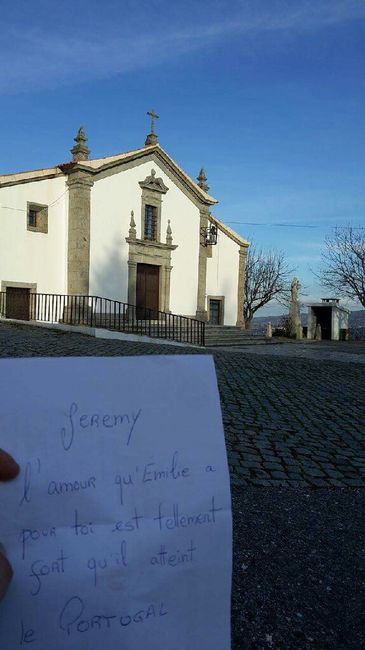 Jeremy
l'amour qu'Emilie a
pour toi est tellement
fort qu'il atteint
le PORTUGAL